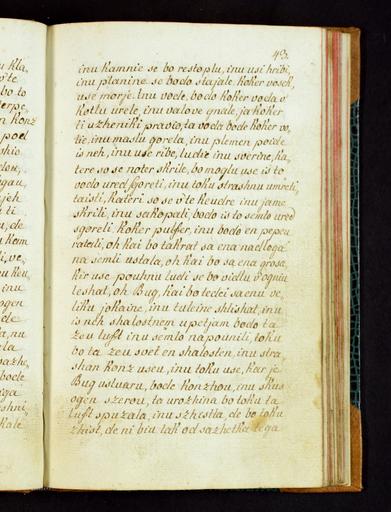 43.
inu kamnie se bo restoplu, inu usi hribi,
inu planine se bodo stajale, koker vosek,
use morje. Inu vode, bodo koker voda v'
kotlu urele, inu valove gnale, ja koker
ti uzheniki pravio, ta voda bode koker vo,
lie, inu maslu gorela, inu plemen pojde
is neh, inu use ribe, ludie inu sverine, ka,
tere so se noter skrile, bo moglu use is to
vodo ured sgoreti, inu toku strashnu umreti,
taisti, kateri so se v'te keudre inu jame
skrili, inu sakopali, bodo is to semlo ured
sgoreli koker pulfer, inu bodo en pepeu
ratali, oh kai bo takrat sa ena nadloga
na semli ustala, oh kai bo sa ena grosa,
kir use pouhnu ludi se bo vidlu v'ogniu
leshat, oh Bug, kai bo tedei sa enu ve,
liku jokaine, inu tuleine shlishat, inu
is neh shalostnem upetjam bodo ta
zeu luft inu semlo napounili, toku
bo ta zeu svet en shalosten, inu stra,
shan konz useu, inu toku use, kar je
Bug usluaru, bode konzhou, inu skus
ogen szerou, ta urozhina bo toku ta
luft spuzala, inu szhestla, de bo toku
zhist, de ni biu tak od sazhetka tega